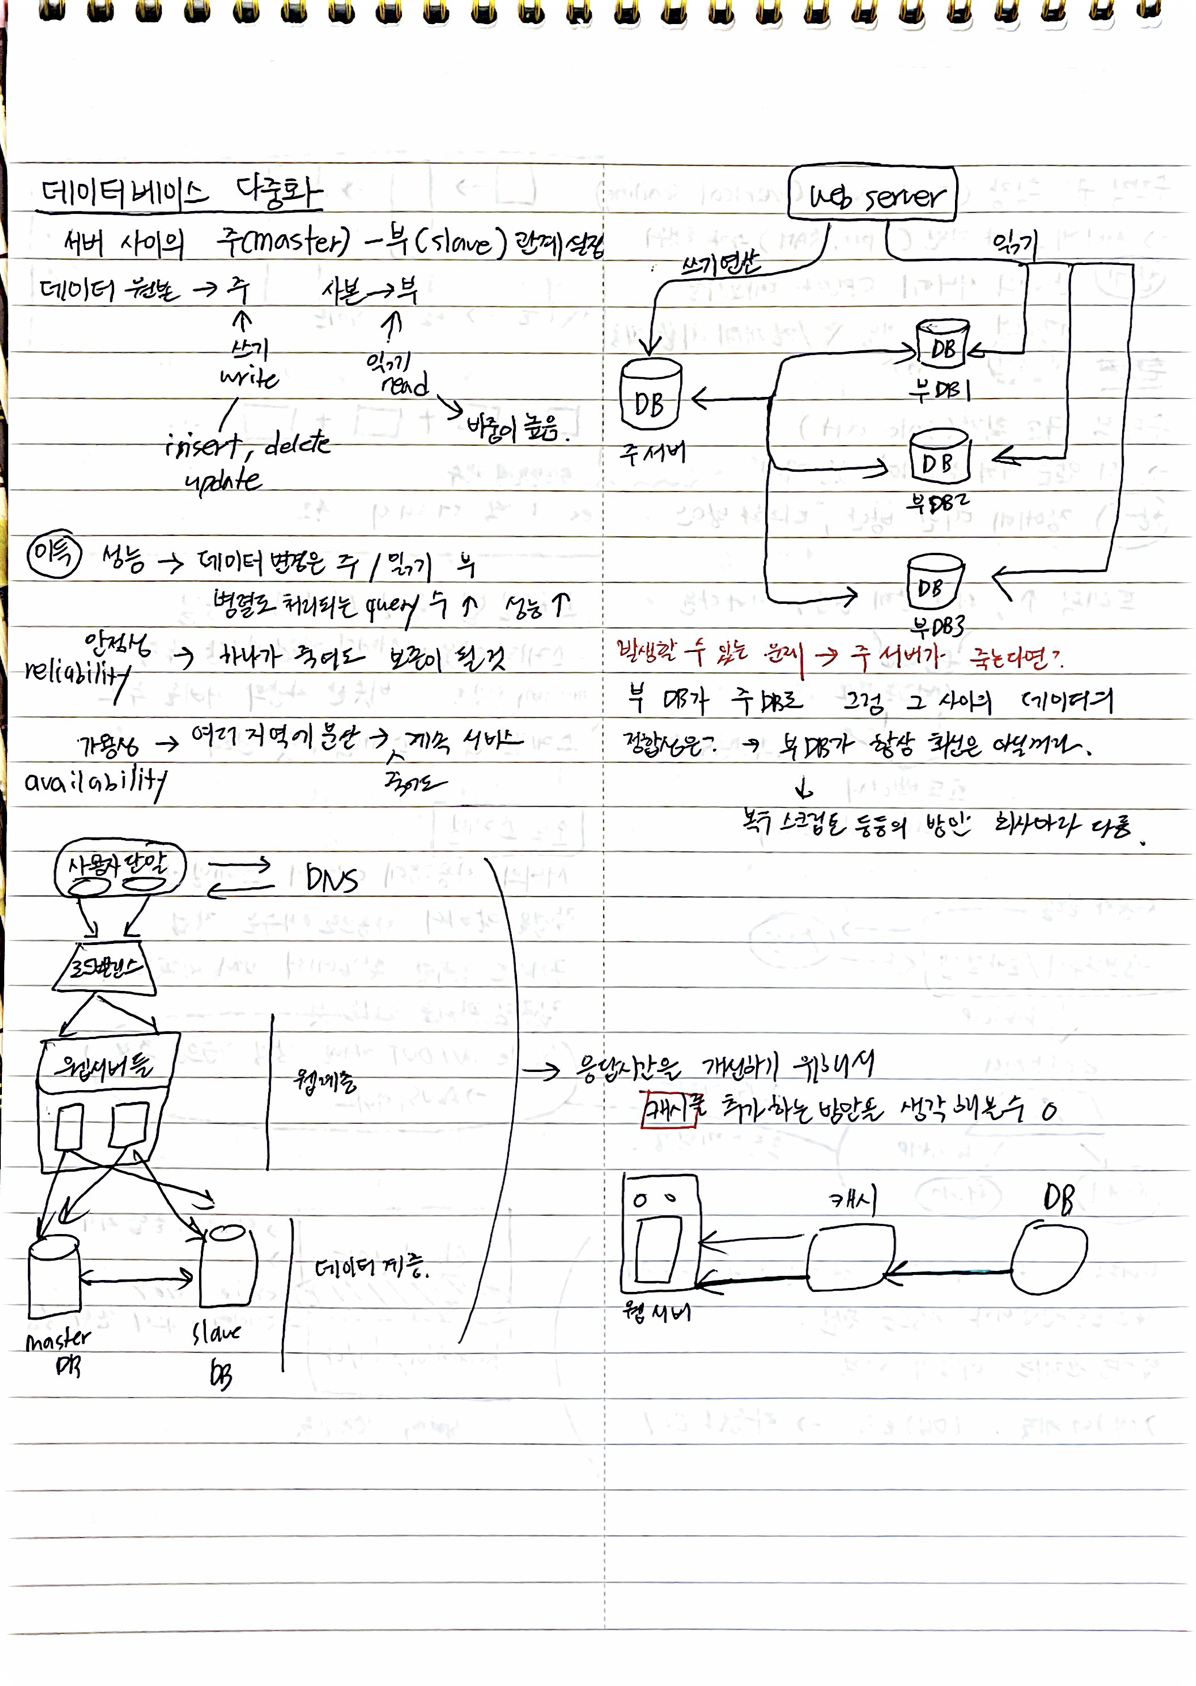 데이터베이스 다중화
서버 사이의 주(master) - 부(slave) 관계 설정
데이터 원본 → 주 사본 → 부
쓰기
write
읽기
read
비중이 높음.
insert, delete
update
이득 성능 → 데이터 변경은 주 / 읽기 부
병렬도 처리되는 query 수 ↑ 성능 ↑
안정성
reliability → 하나가 죽어도 보존이 될 것
가용성 → 여러 지역에 분산 → 계속 서비스
availability
죽어도
사용자 단말
DNS
로드밸런스
웹서버들
웹계층
데이터 계층.
master
DB
slave
DB
web server
쓰기연산
읽기
DB
주 서버
DB
부DB1
DB
부DB2
DB
부DB3
발생할 수 있는 문제 → 주 서버가 죽는다면?
부 DB가 주 DB로 그럼 그 사이의 데이터의
정합성은? → 부DB가 항상 최신은 아닐꺼라.
↓
복구 스크립트 등등의 방안 회사마다 다름.
→ 응답시간을 개선하기 위해서
캐시를 추가하는 방안을 생각해볼수 O
캐시
DB
웹 서버